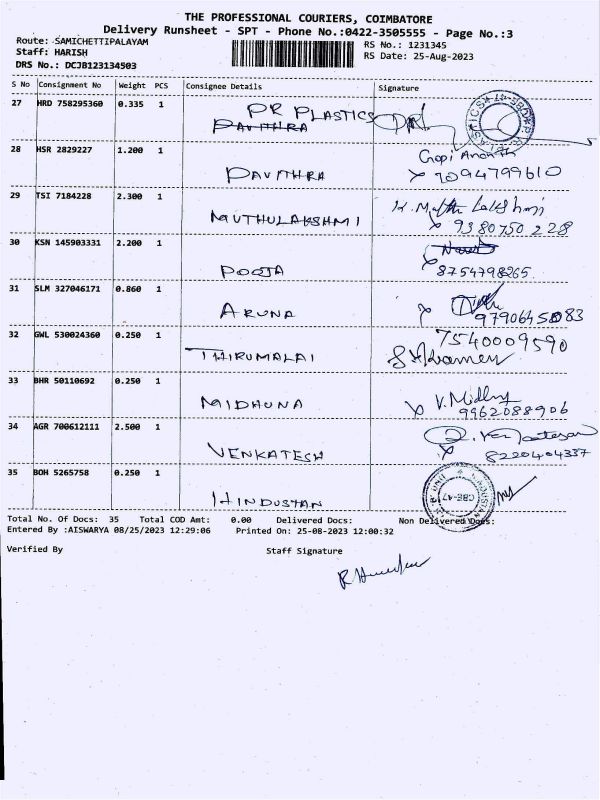 THE PROFESSIONAL COURIERS, COIMBATORE
Delivery Runsheet - SPT - Phone No.:0422-3505555 - Page No.:3
Route: SAMICHETTIPALAYAM
RS No.: 1231345
Staff: HARISH
RS Date: 25-Aug-2023
DRS No.: DCJB123134503
S No Consignment No Weight PCS Consignee Details Signature
27 HRD 758295360 0.335 1 PR PLASTICS
PAVITHRA
28 HSR 2829227 1.200 1 Gopi Ananth
PAVITHRA 7094799610
29 TSI 7184228 2.300 1
MUTHULAKSHMI 9380750228
30 KSN 145903331 2.200 1
POOJA 8754798265
31 SLM 327046171 0.860 1
ARUNA
32 GWL 530024360 0.250 1 7540009590
THIRUMALAI
33 BHR 50110692 0.250 1
MIDHUNA 9962088906
34 AGR 700612111 2.500 1
VENKATESH 8220404337
35 BOH 5265758 0.250 1
HINDUSTAN
Total No. Of Docs: 35 Total COD Amt: 0.00 Delivered Docs: Non Delivered Docs:
Entered By :AISWARYA 08/25/2023 12:29:06 Printed On: 25-08-2023 12:00:32
Verified By Staff Signature